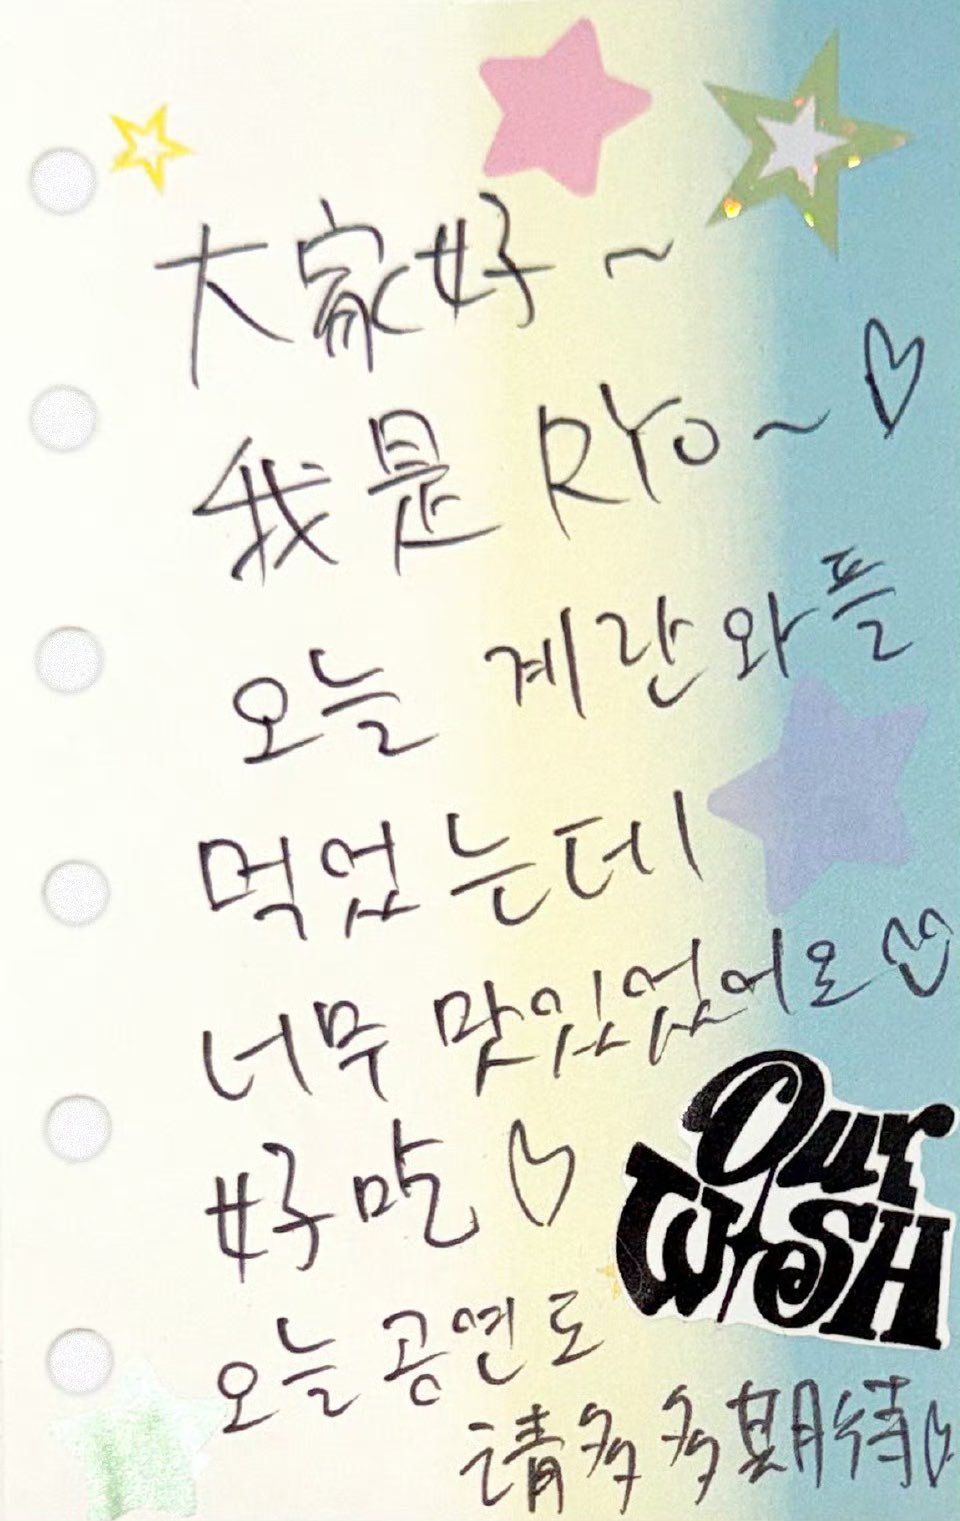 大家好~
我是 RYO~ ♡
오늘 계란와플
먹었는데
너무 맛있었어요
好 말 ♡
오늘 공연도
請多多期待♡
Our
WISH